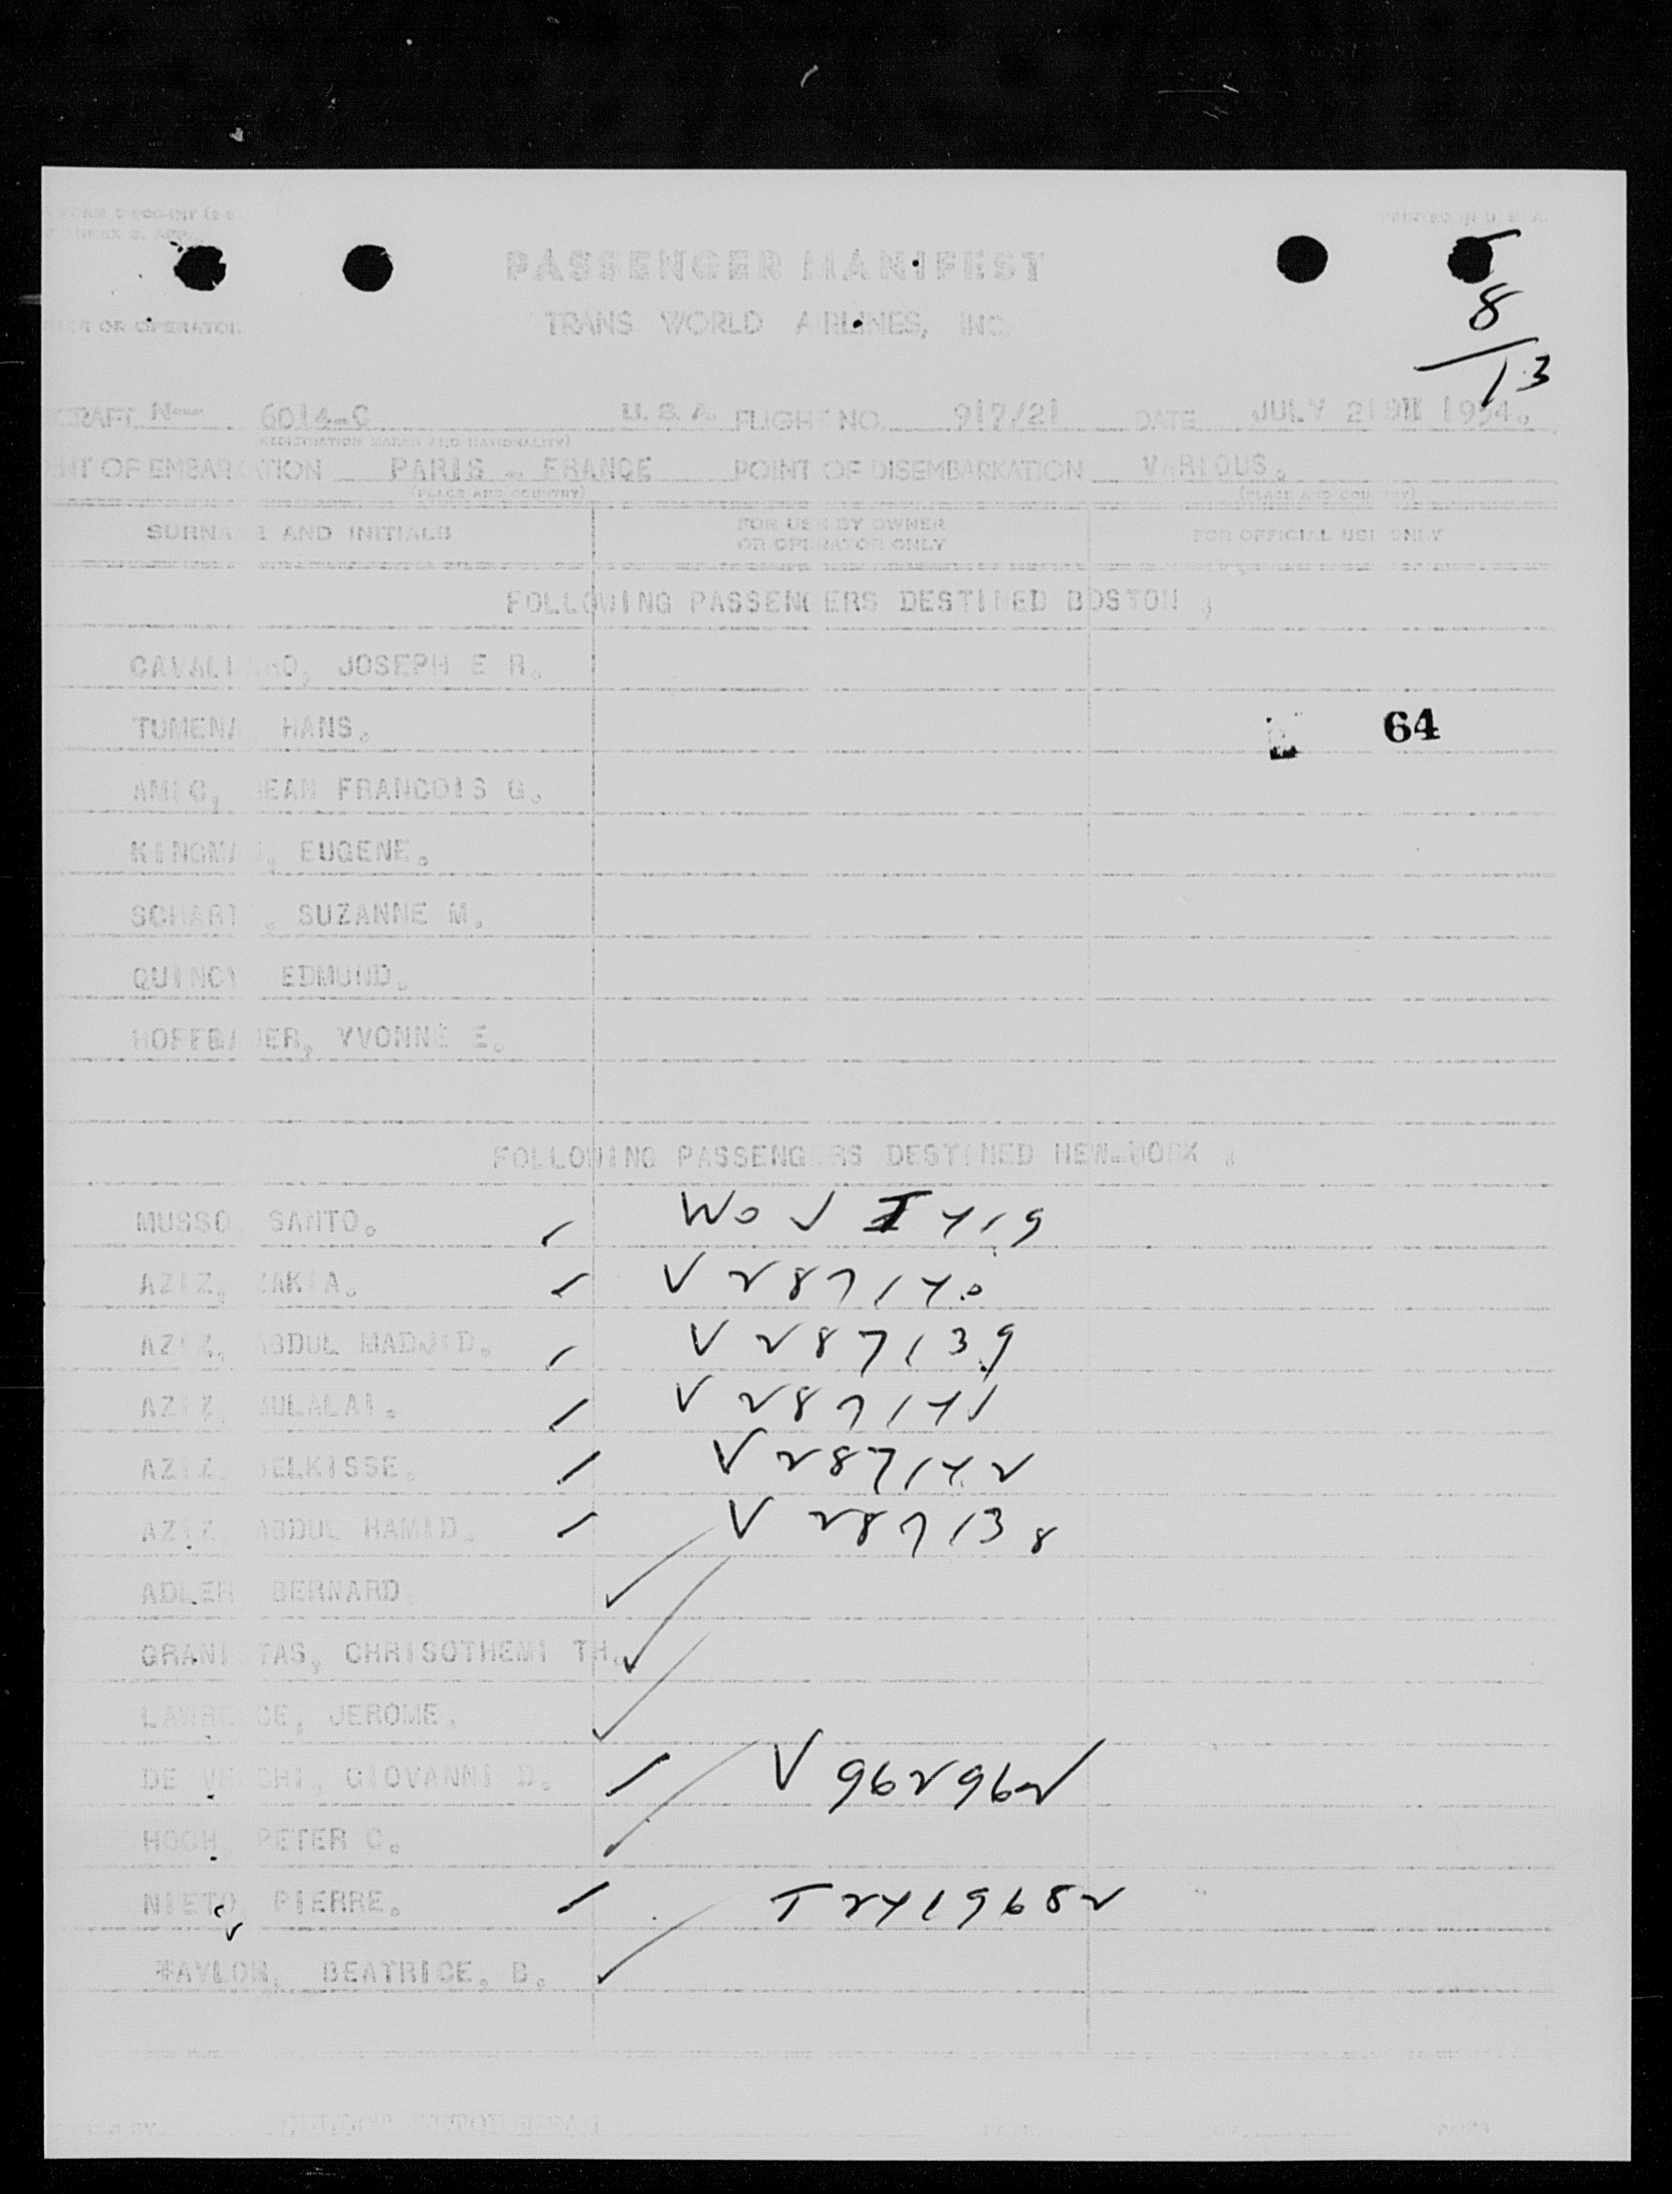 PRINTED IN U. S. A.
PASSENGER MANIFEST
OR OPERATOR
TRANS WORLD AIRLINES, INC.
8
13
N— 6014-C U.S.A. FLIGHT NO. 917/21 DATE JULY 1954.
(REGISTRATION MARKS AND NATIONALITY)
POINT OF EMBARKATION PARIS - FRANCE POINT OF DISEMBARKATION VARIOUS.
(PLACE AND COUNTRY) (PLACE AND COUNTRY)
SURNAME AND INITIALS FOR USE BY OWNER OR OPERATOR ONLY FOR OFFICIAL USE ONLY
FOLLOWING PASSENGERS DESTINED BOSTON ;
JOSEPH E R.
HANS. 64
AMIC, JEAN FRANCOIS G.
KINGMAN, EUGENE.
SUZANNE M.
QUINCY EDMUND.
HOFFBAUER, YVONNE E.
FOLLOWING PASSENGERS DESTINED NEW-YORK ;
MUSSO SANTO.
AZIZ, ZAKIA. V 287140
AZIZ, ABDUL MADJID. V 287139
AZIZ, V 287141
AZIZ, BELKISSE. V 287142
AZIZ, ABDUL HAMID. V 287138
ADLER BERNARD
CHRISOTHEMI TH.
LAWRENCE, JEROME.
DE VECCHI, GIOVANNI D. V 962962
HOCH, PETER C.
NIETO, PIERRE. T 2419682
BEATRICE. B.